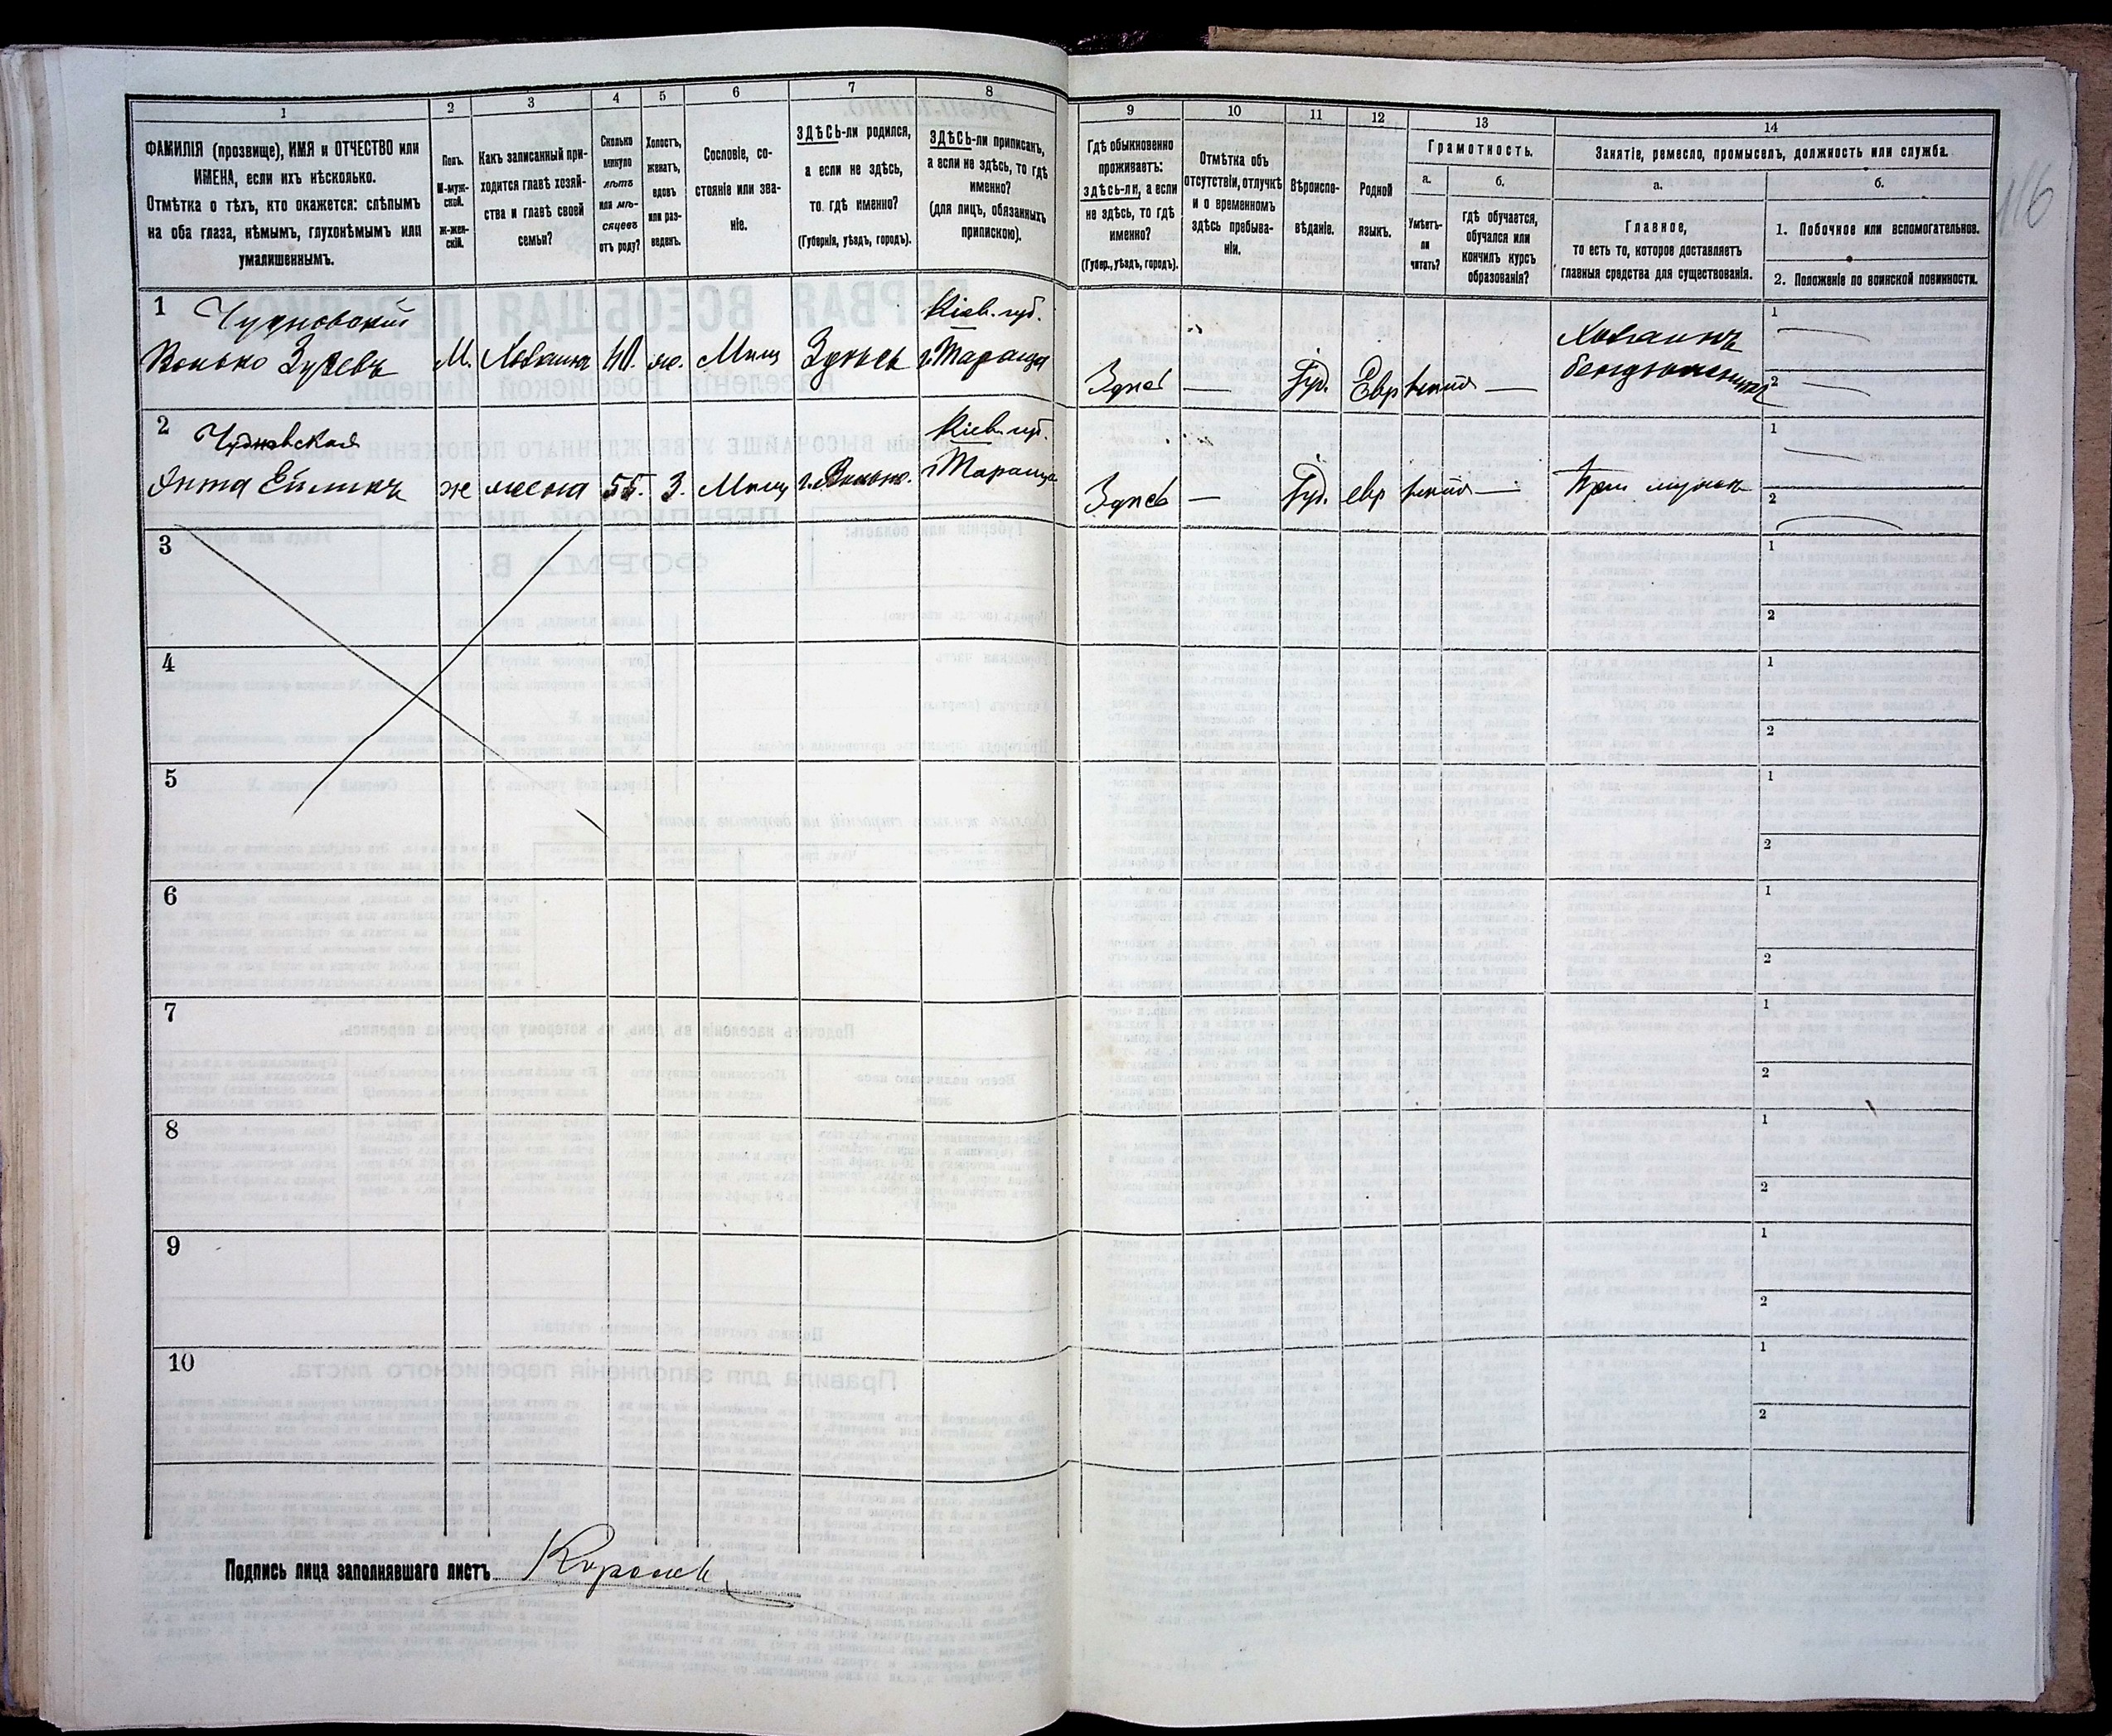 116
1 2 3 4 5 6 7 8 9 10 11 12 13 14
ФАМИЛІЯ (прозвище), ИМЯ и ОТЧЕСТВО или
ИМЕНА, если ихъ нѣсколько.
Отмѣтка о тѣхъ, кто окажется: слѣпымъ
на оба глаза, нѣмымъ, глухонѣмымъ или
умалишеннымъ.
Полъ.
М-муж-
ской.
ж-жен-
скій.
Какъ записанный при-
ходится главѣ хозяй-
ства и главѣ своей
семьи?
Сколько
минуло
лѣтъ
или мѣ-
сяцевъ
отъ роду?
Холостъ,
женатъ,
вдовъ
или раз-
веденъ.
Сословіе, со-
стояніе или зва-
ніе.
ЗДѢСЬ-ли родился,
а если не здѣсь,
то гдѣ именно?
(Губернія, уѣздъ, городъ).
ЗДѢСЬ-ли приписанъ,
а если не здѣсь, то гдѣ
именно?
(для лицъ, обязанныхъ
припискою).
Гдѣ обыкновенно
проживаетъ:
здѣсь-ли, а если
не здѣсь, то гдѣ
именно?
(Губер., уѣздъ, городъ).
Отмѣтка объ
отсутствіи, отлучкѣ
и о временномъ
здѣсь пребыва-
ніи.
Вѣроиспо-
вѣданіе.
Родной
языкъ.
Грамотность.
а.
Умѣетъ-
ли
читать?
б.
гдѣ обучается,
обучался или
кончилъ курсъ
образованія?
Занятіе, ремесло, промыселъ, должность или служба.
а.
Главное,
то есть то, которое доставляетъ
главныя средства для существованія.
б.
1. Побочное или вспомогательное.
2. Положеніе по воинской повинности.
1 Чудновскій Кіев. губ. Хозаинъ 1
М. 40. ж. Мѣщ Здѣсь г. Тараща Здѣсь — Іуд. Евр — 2
2 Чудновская Кіев. губ. 1
ж жена 55. З. Мѣщ г. Тараща Здѣсь — Іуд. евр — При мужѣ 2
3 1
2
4 1
2
5 1
2
6 1
2
7 1
2
8 1
2
9 1
2
10 1
2
Подпись лица заполнявшаго листъ